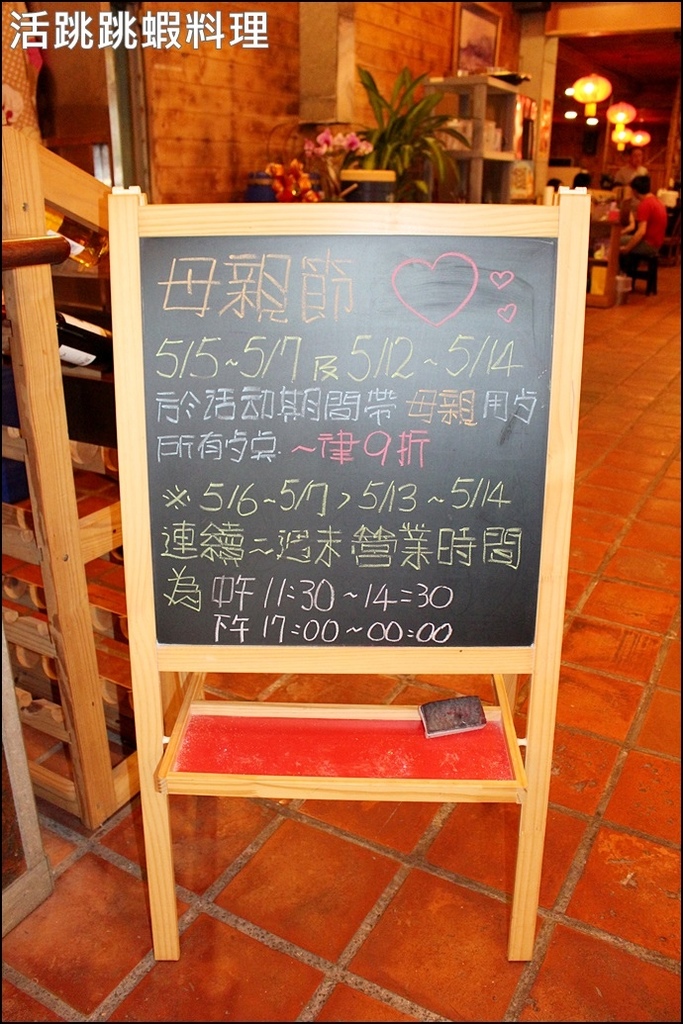 活跳跳蝦料理
母親節
5/5~5/7 及 5/12~5/14
於活动期間帶母親用点
所有歺点 ~律9折
※ 5/6~5/7、5/13~5/14
連續二週末營業時間
為 中午 11:30~14:30
下午 17:00~00:00